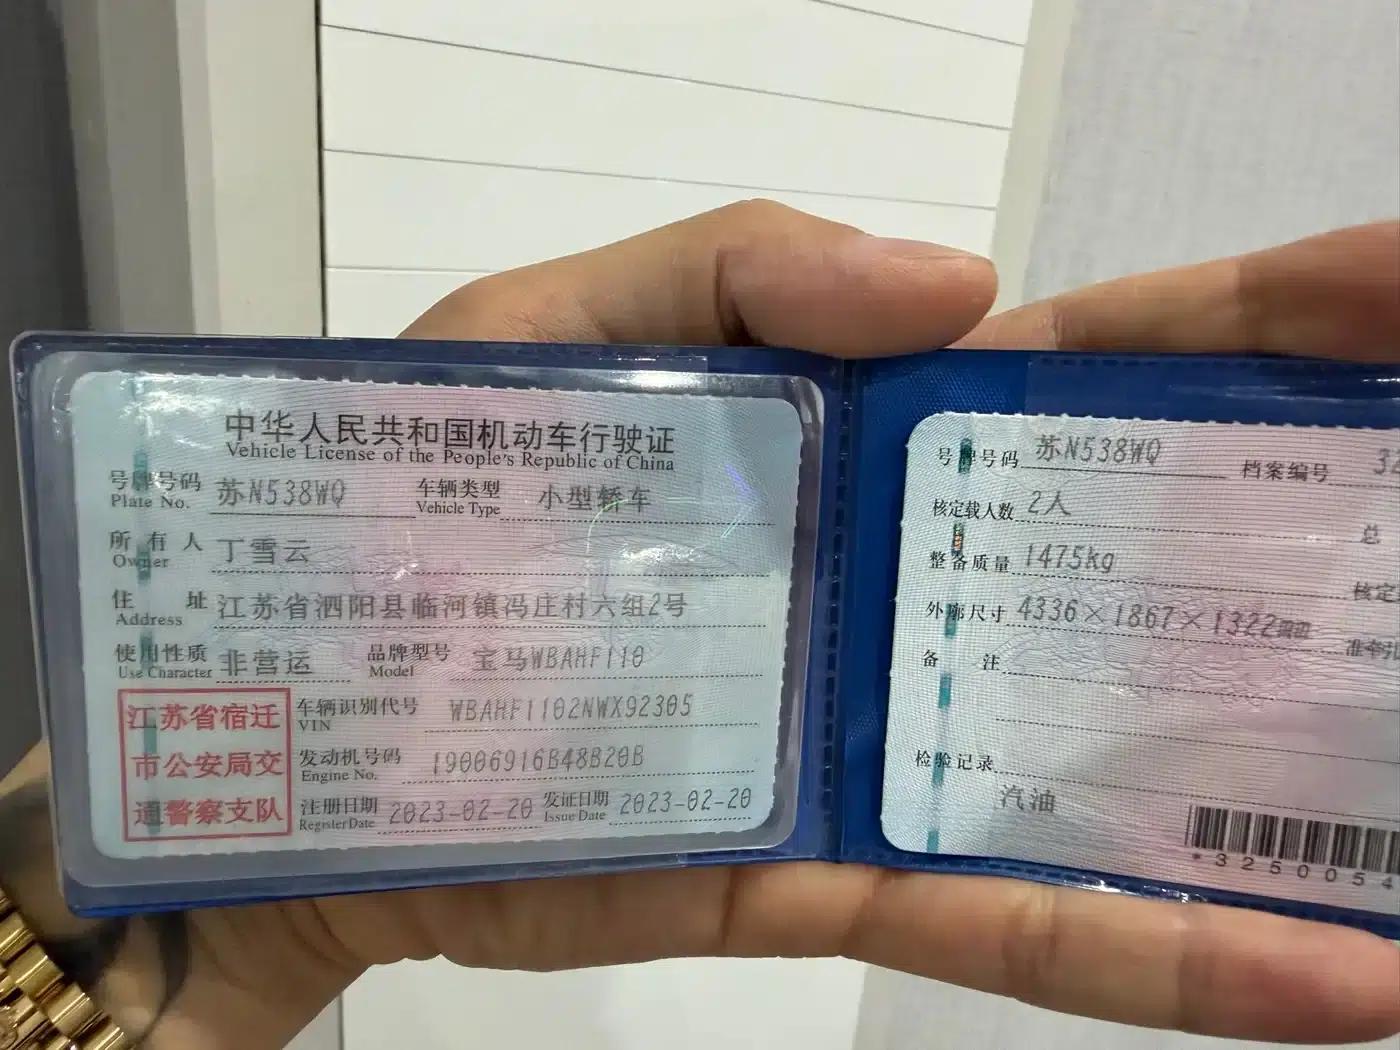 中华人民共和国机动车行驶证
Vehicle License of the People's Republic of China
号牌号码 苏N538WQ 车辆类型 小型轿车
Plate No. Vehicle Type
所有人 丁雪云
Owner
住址 江苏省泗阳县临河镇冯庄村六组2号
Address
使用性质 非营运 品牌型号 宝马WBAHF110
Use Character Model
江苏省宿迁
市公安局交
通警察支队
车辆识别代号 WBAHF1102NWX92305
VIN
发动机号码 19006916B48B20B
Engine No.
注册日期 2023-02-20 发证日期 2023-02-20
Register Date Issue Date
号牌号码 苏N538WQ 档案编号 32
核定载人数 2人
总
整备质量 1475kg
核定
外廓尺寸 4336×1867×1322
准牵
备注
检验记录
汽油
*3250054